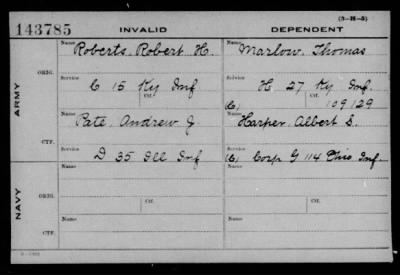 (3-H-5)
143785 INVALID DEPENDENT
Name Roberts, Robert H. Name Marlow, Thomas
ORIG.
Service C 15 Ky Inf Service H 27 Ky Inf.
Ctf. Ctf. 109129
ARMY
Name Pate, Andrew J. Name Harper, Albert S.
CTF.
Service D 35 Ill Inf Service Corp G 114 Ohio Inf.
NAVY
Name Name
ORIG.
Service Service
Ctf. Ctf.
Name Name
CTF.